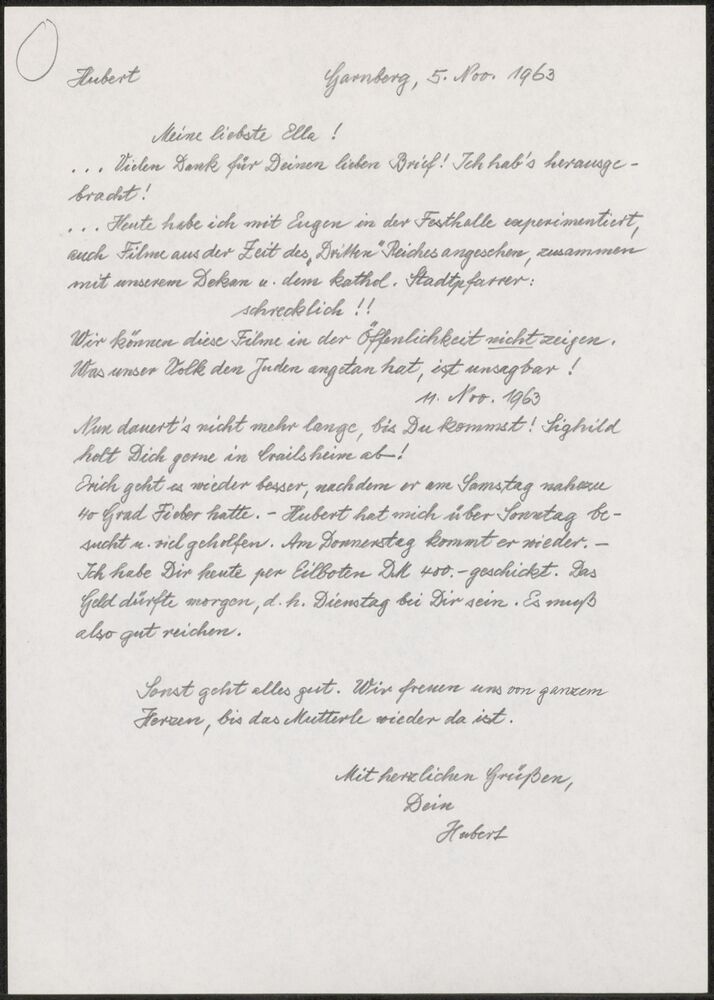 Hubert
Garnberg, 5. Nov. 1963
Meine liebste Ella !
... Vielen Dank für Deinen lieben Brief! Ich hab's herausge-
bracht!
... Heute habe ich mit Eugen in der Festhalle experimentiert,
auch Filme aus der Zeit des „Dritten" Reiches angesehen, zusammen
mit unserem Dekan u. dem kathol. Stadtpfarrer:
schrecklich !!
Wir können diese Filme in der Öffenlichkeit nicht zeigen.
Was unser Volk den Juden angetan hat, ist unsagbar !
11. Nov. 1963
Nun dauert's nicht mehr lange, bis Du kommst! Sighild
holt Dich gerne in Crailsheim ab!
Erich geht es wieder besser, nachdem er am Samstag nahezu
40 Grad Fieber hatte. - Hubert hat mich über Sonntag be-
sucht u. viel geholfen. Am Donnerstag kommt er wieder. -
Ich habe Dir heute per Eilboten DM 400.- geschickt. Das
Geld dürfte morgen, d. h. Dienstag bei Dir sein. Es muß
also gut reichen.
Sonst geht alles gut. Wir freuen uns von ganzem
Herzen, bis das Mutterle wieder da ist.
Mit herzlichen Grüßen,
Dein
Hubert